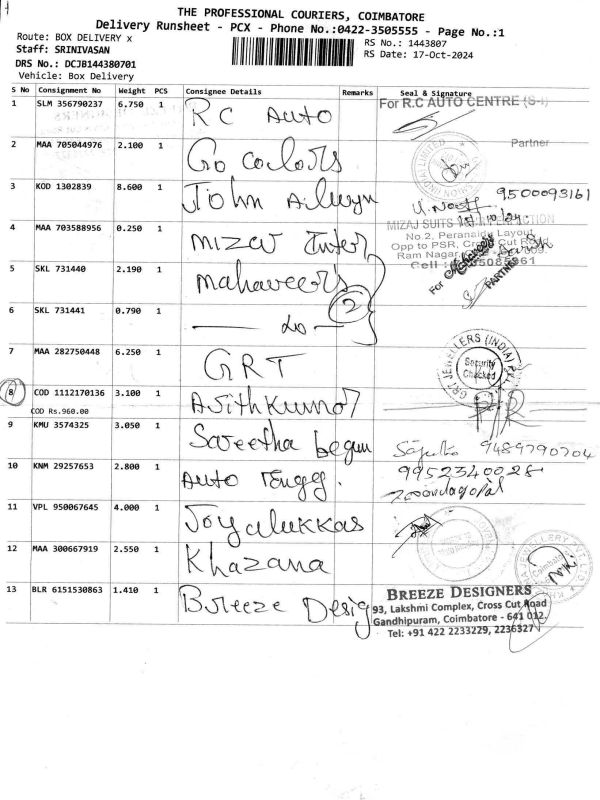 THE PROFESSIONAL COURIERS, COIMBATORE
Delivery Runsheet - PCX - Phone No.:0422-3505555 - Page No.:1
Route: BOX DELIVERY x
RS No.: 1443807
Staff: SRINIVASAN
RS Date: 17-Oct-2024
DRS No.: DCJB144380701
Vehicle: Box Delivery
S No Consignment No Weight PCS Consignee Details Remarks Seal & Signature
1 SLM 356790237 6.750 1 R C Auto
For R.C AUTO CENTRE (S-I)
Partner
2 MAA 705044976 2.100 1 Go colors
3 KOD 1302839 8.600 1 John
9500093161
4 MAA 703588956 0.250 1 mizaj Inter
MIZAJ SUITS
No.2, Peranaidu Layout,
Opp to PSR, Cross Cut Road
Ram Nagar
Cell :
For
PARTNER
5 SKL 731440 2.190 1 mahaveer's
2
6 SKL 731441 0.790 1 — do —
7 MAA 282750448 6.250 1 GRT
GRT JEWELLERS (INDIA)
Security
Checked
8 COD 1112170136 3.100 1 Ajithkumar
COD Rs.960.00
9 KMU 3574325 3.050 1 Sareetha begum
9489790704
10 KNM 29257653 2.800 1 Auto Engg.
9952340028
11 VPL 950067645 4.000 1 Joyalukkas
12 MAA 300667919 2.550 1 Khazana
Coimbatore
13 BLR 6151530863 1.410 1 Breeze Desig
BREEZE DESIGNERS
93, Lakshmi Complex, Cross Cut Road
Gandhipuram, Coimbatore - 641 012.
Tel: +91 422 2233229, 2236327